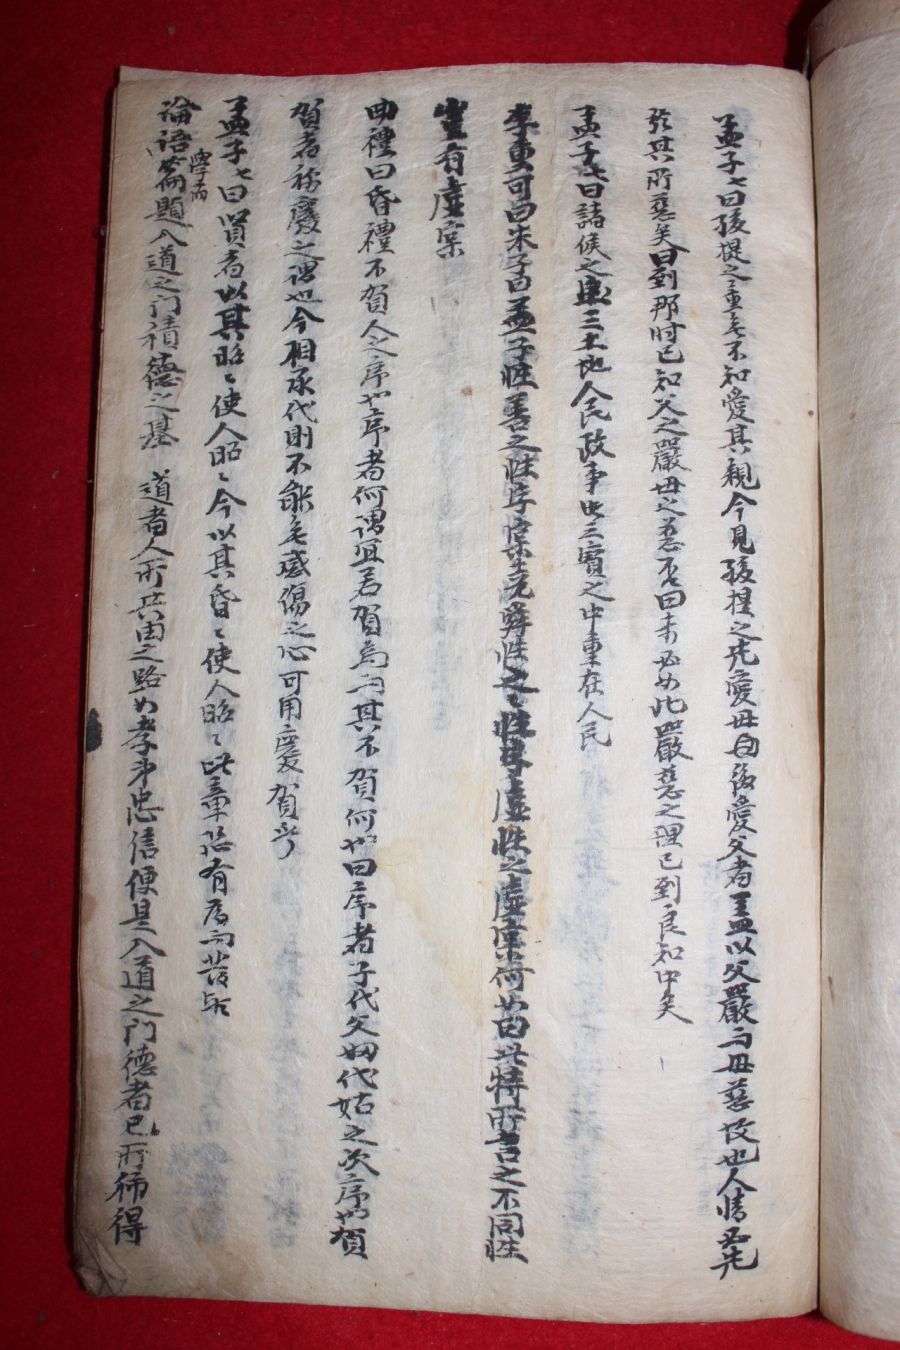 孟子〻曰孩提之童無不知愛其親今見孩提之先愛母自後愛父者盖以父嚴而母慈故也人情必先
於其所慈矣曰到那时已知父之嚴母之慈否曰未必如此嚴慈之理已到良知中矣
孟子〻曰諸侯之宝三土地人民政事此三寳之中重在人民
李東可曰朱子曰孟子性善之性字実堯舜性之〻性字虚性之虚実何如曰此特所言之不同性
豈有虚実
曲禮曰昏禮不賀人之序也序者何謂宜若賀焉而其不賀何也曰序者子代父婦代姑之次序也賀
賀者称慶之謂也今相承代則不能無感傷之心可用慶賀乎
孟子〻曰賢者以其昭〻使人昭〻今以其昏〻使人昭〻此章恐有為而發歟
論語學而篇題入道之门積德之基 道者人所共由之路如孝弟忠信便是入道之门德者己所稱得